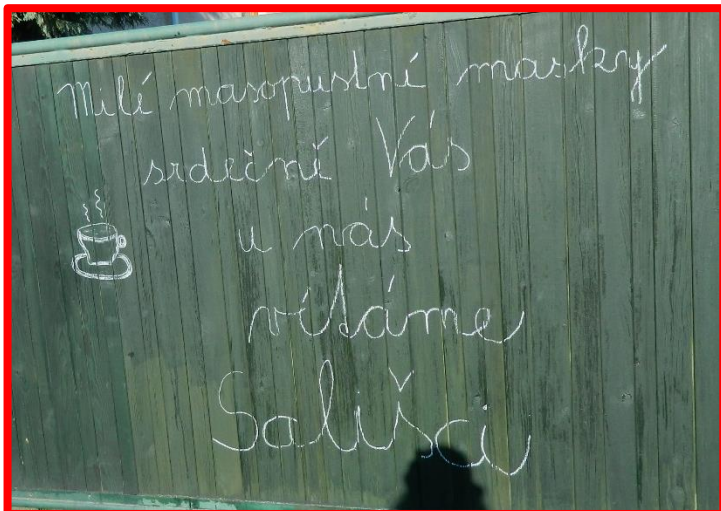 Milé masopustní masky
srdečně Vás
u nás
vítáme
Sališci